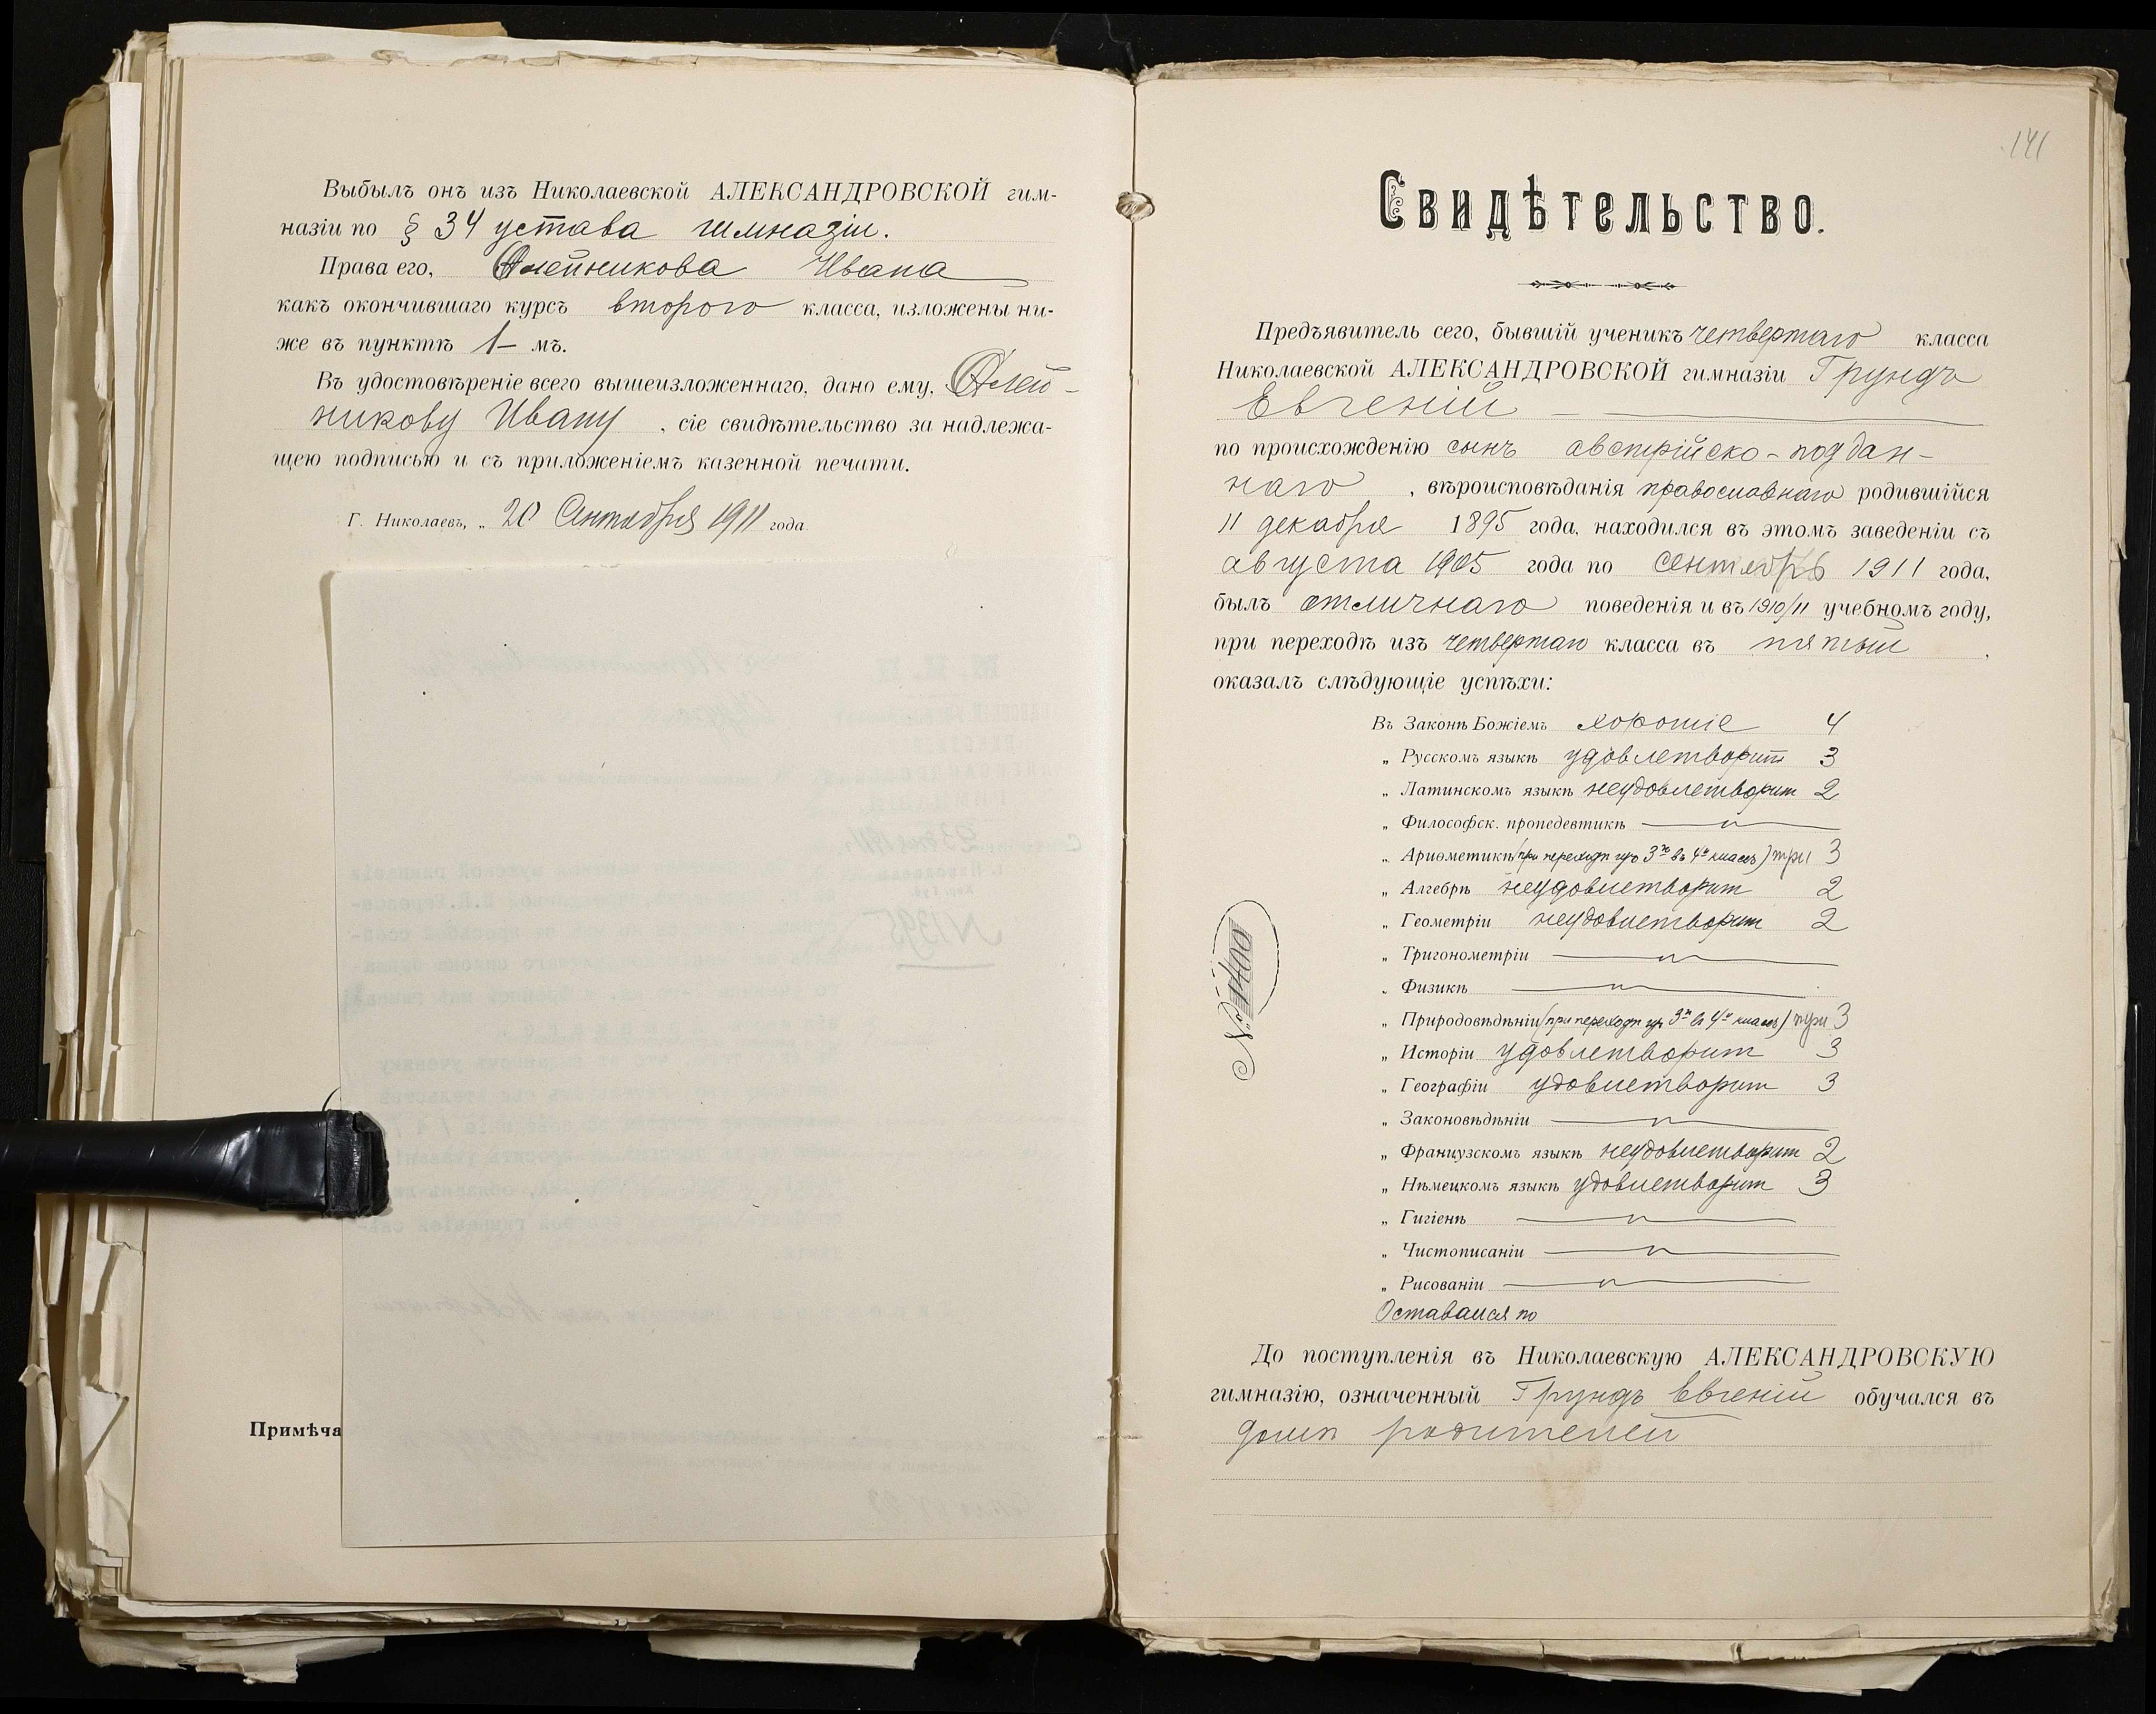 Выбылъ онъ изъ Николаевской АЛЕКСАНДРОВСКОЙ гим-
назіи по § 34 устава гимназіи.
Права его, Олейникова Ивана
какъ окончившаго курсъ второго класса, изложены ни-
же въ пунктѣ 1- мъ.
Въ удостовѣреніе всего вышеизложеннаго, дано ему, Олей-
никову Ивану, сіе свидѣтельство за надлежа-
щею подписью и съ приложеніемъ казенной печати.
Г. Николаевъ, „ 20 Сентября 1911 года.
Примѣча
141
Свидѣтельство.
Предъявитель сего, бывшій ученикъ четвертаго класса
Николаевской АЛЕКСАНДРОВСКОЙ гимназіи Грундъ
Евгеній
по происхожденію сынъ австрійско-поддан-
наго, вѣроисповѣданія православнаго родившійся
11 декабря 1895 года, находился въ этомъ заведеніи съ
августа 1905 года по сентябрь 1911 года,
былъ отличнаго поведенія и въ 1910/11 учебномъ году,
при переходѣ изъ четвертаго класса въ пятый,
оказалъ слѣдующіе успѣхи:
Въ Законѣ Божіемъ хорошіе 4
„ Русскомъ языкѣ удовлетворит 3
„ Латинскомъ языкѣ неудовлетворит 2
„ Философск. пропедевтикѣ
„ Ариѳметикѣ (при переходѣ изъ 3го въ 4й классъ) три 3
„ Алгебрѣ неудовлетворит 2
„ Геометріи неудовлетворит 2
„ Тригонометріи
„ Физикѣ
„ Природовѣдѣніи (при переходѣ изъ 3го въ 4й классъ) три 3
„ Исторіи удовлетворит 3
„ Географіи удовлетворит 3
„ Законовѣдѣніи
„ Французскомъ языкѣ неудовлетворит 2
„ Нѣмецкомъ языкѣ удовлетворит 3
„ Гигіенѣ
„ Чистописаніи
„ Рисованіи
Оставался по
№ 1400
До поступленія въ Николаевскую АЛЕКСАНДРОВСКУЮ
гимназію, означенный Грундъ Евгеній обучался въ
домѣ родителей